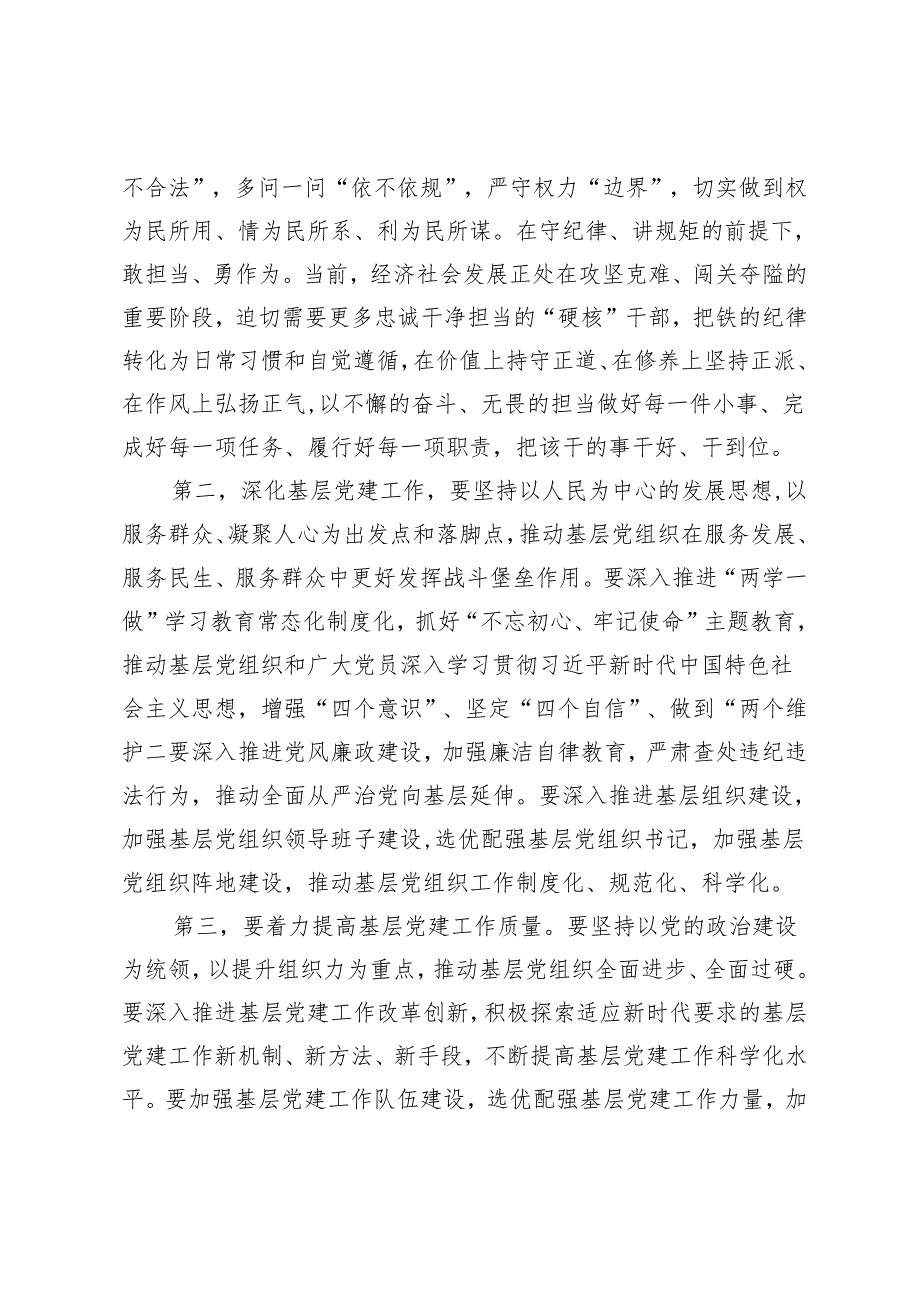 不合法”，多问一问“依不依规”，严守权力“边界”，切实做到权
为民所用、情为民所系、利为民所谋。在守纪律、讲规矩的前提下，
敢担当、勇作为。当前，经济社会发展正处在攻坚克难、闯关夺隘的
重要阶段，迫切需要更多忠诚干净担当的“硬核”干部，把铁的纪律
转化为日常习惯和自觉遵循，在价值上持守正道、在修养上坚持正派、
在作风上弘扬正气,以不懈的奋斗、无畏的担当做好每一件小事、完
成好每一项任务、履行好每一项职责，把该干的事干好、干到位。
第二，深化基层党建工作，要坚持以人民为中心的发展思想,以
服务群众、凝聚人心为出发点和落脚点，推动基层党组织在服务发展、
服务民生、服务群众中更好发挥战斗堡垒作用。要深入推进“两学一
做”学习教育常态化制度化，抓好“不忘初心、牢记使命”主题教育，
推动基层党组织和广大党员深入学习贯彻习近平新时代中国特色社
会主义思想，增强“四个意识”、坚定“四个自信”、做到“两个维
护二要深入推进党风廉政建设，加强廉洁自律教育，严肃查处违纪违
法行为，推动全面从严治党向基层延伸。要深入推进基层组织建设，
加强基层党组织领导班子建设,选优配强基层党组织书记，加强基层
党组织阵地建设，推动基层党组织工作制度化、规范化、科学化。
第三，要着力提高基层党建工作质量。要坚持以党的政治建设
为统领，以提升组织力为重点，推动基层党组织全面进步、全面过硬。
要深入推进基层党建工作改革创新，积极探索适应新时代要求的基层
党建工作新机制、新方法、新手段，不断提高基层党建工作科学化水
平。要加强基层党建工作队伍建设，选优配强基层党建工作力量，加